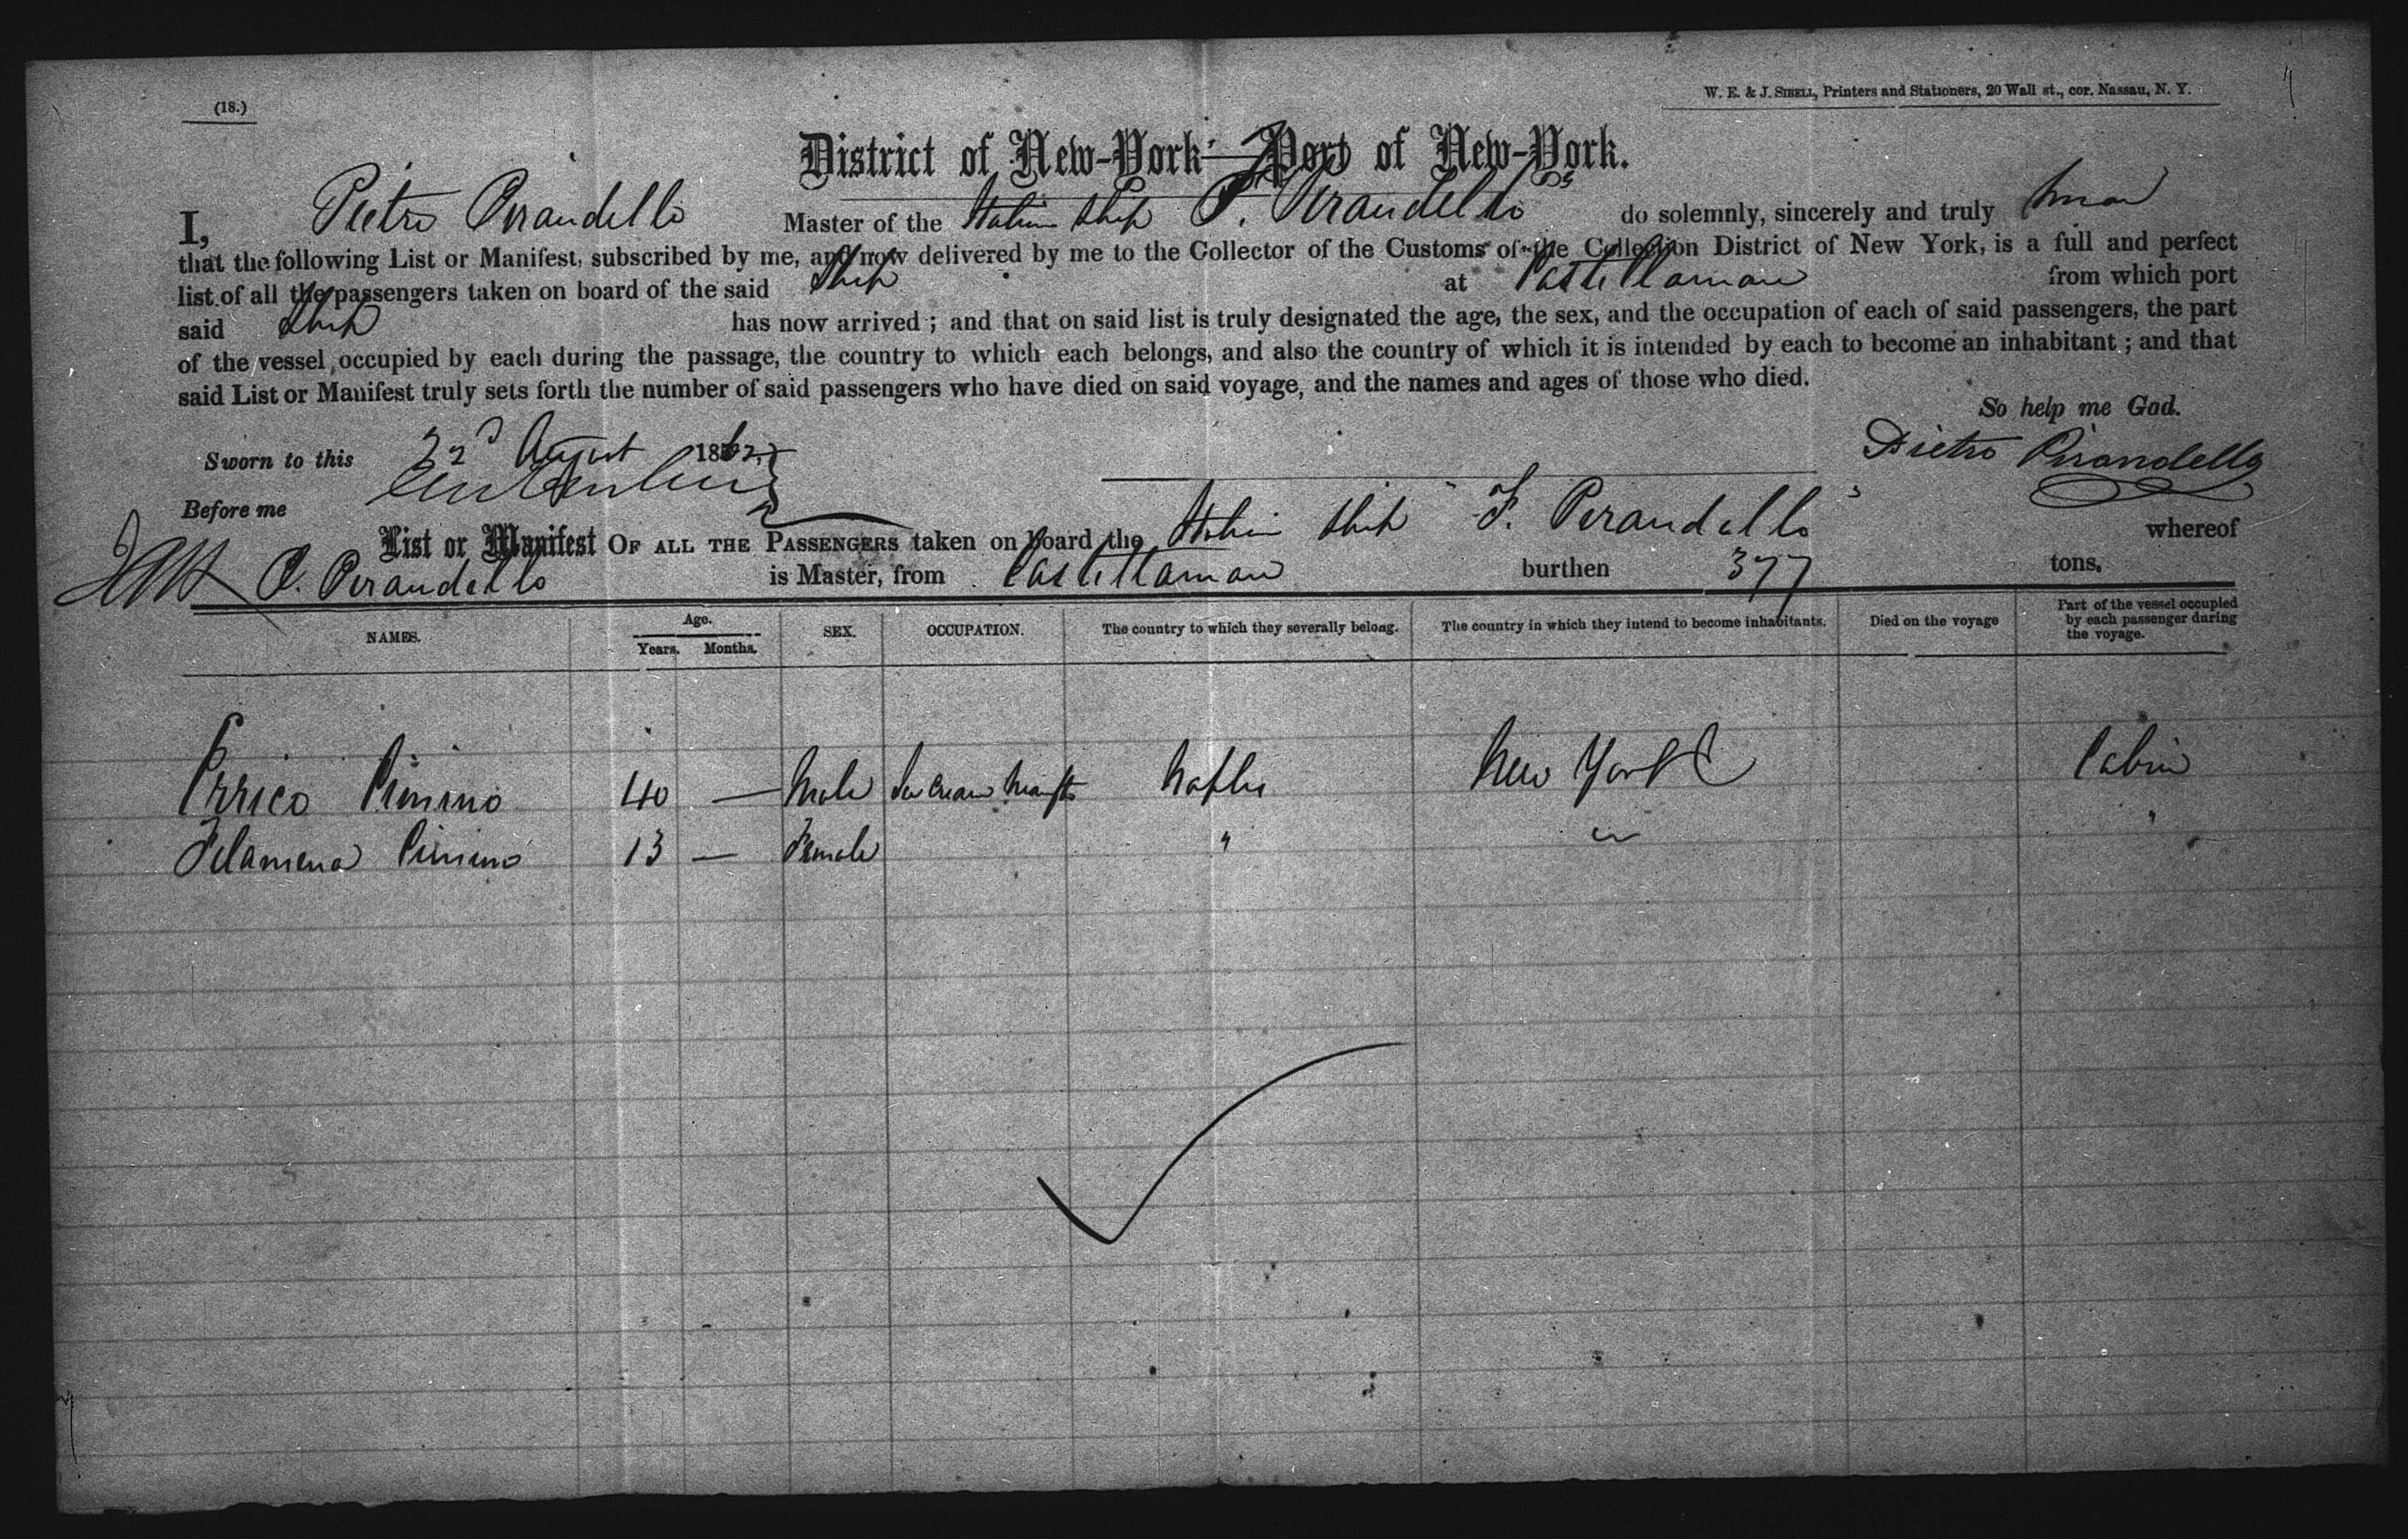 (18.)
W. E. & J. SIBELL, Printers and Stationers, 20 Wall st., cor. Nassau, N. Y.
District of New-York—Port of New-York.
I, Pietro Perandello Master of the Italian Ship F. Perandello do solemnly, sincerely and truly swear
that the following List or Manifest, subscribed by me, and now delivered by me to the Collector of the Customs of the Collection District of New York, is a full and perfect
list of all the passengers taken on board of the said Ship at Castellamare from which port
said Ship has now arrived; and that on said list is truly designated the age, the sex, and the occupation of each of said passengers, the part
of the vessel occupied by each during the passage, the country to which each belongs, and also the country of which it is intended by each to become an inhabitant; and that
said List or Manifest truly sets forth the number of said passengers who have died on said voyage, and the names and ages of those who died.
So help me God.
Sworn to this 22d August 1862 Pietro Pirandello
Before me
List or Manifest OF ALL THE PASSENGERS taken on board the Italian Ship "F. Perandello" whereof
P. Perandello is Master, from Castellamare burthen 377 tons.
NAMES. Age. Years. Months. SEX. OCCUPATION. The country to which they severally belong. The country in which they intend to become inhabitants. Died on the voyage Part of the vessel occupied by each passenger during the voyage.
Errico Cimino 40 — Male Ice Cream Naples New York Cabin
Filamena Cimino 13 — Female " " "